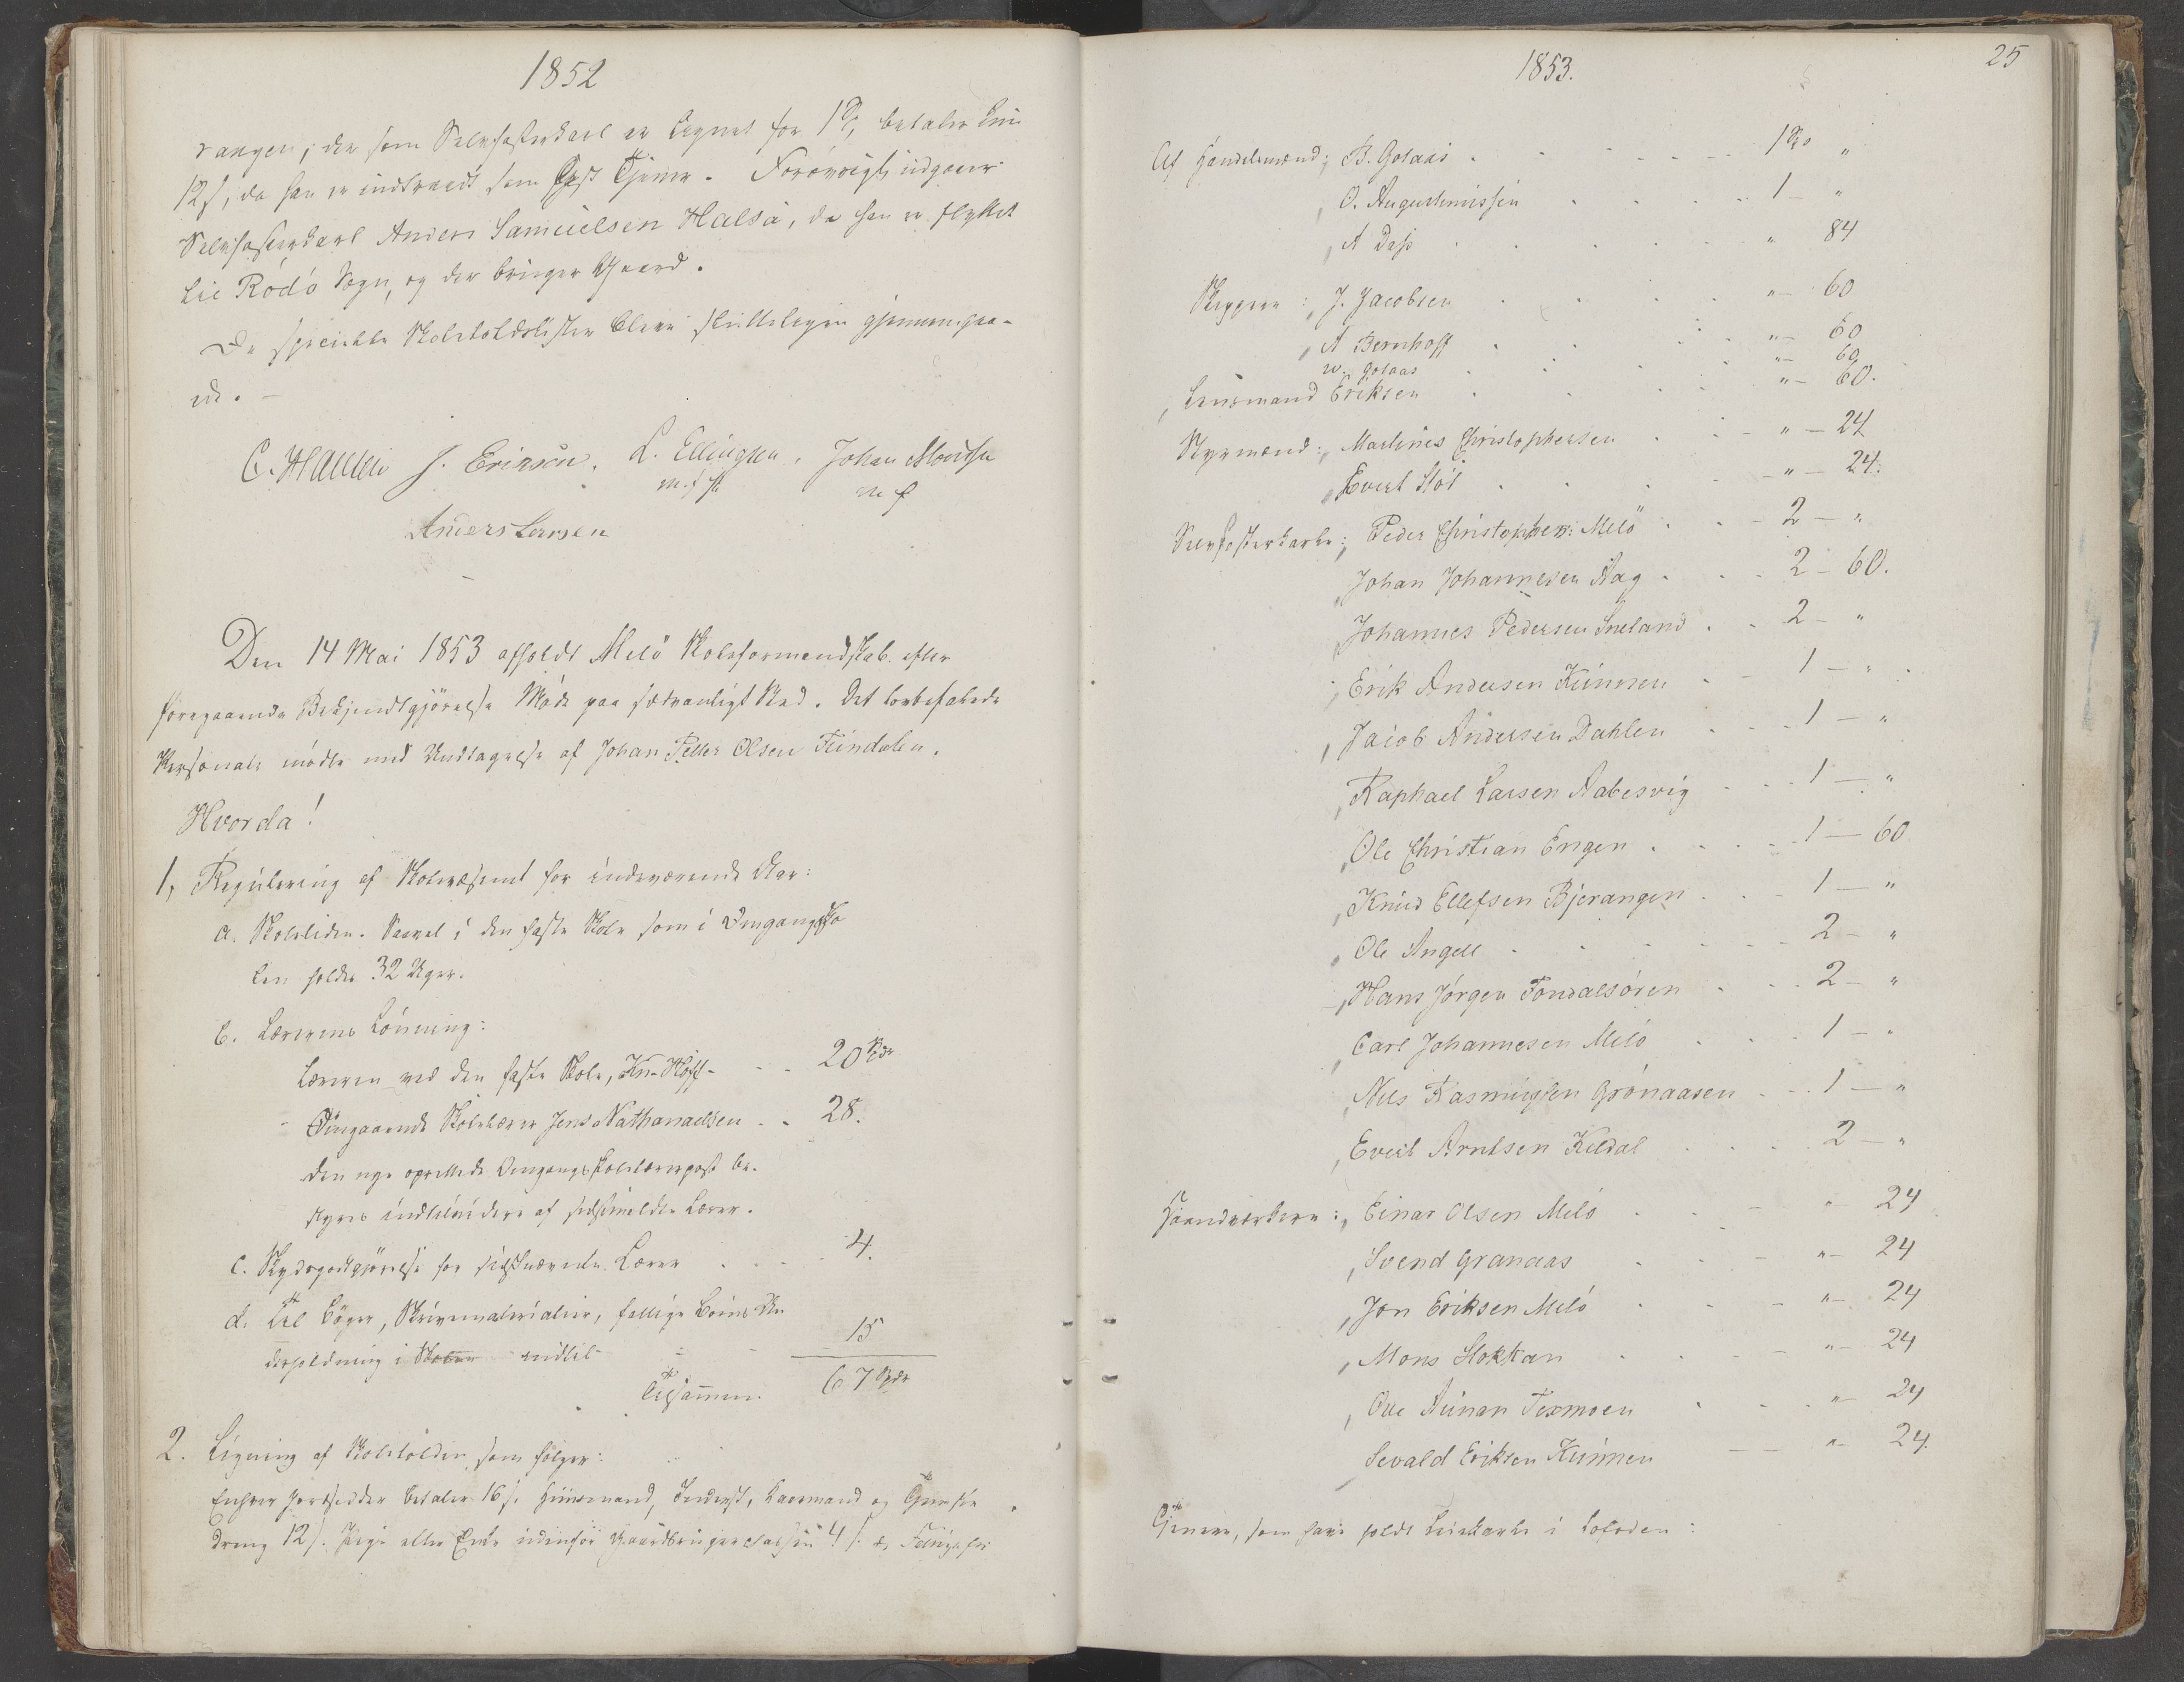 1852
rangen, der som Selvfosterkarl er lignet for 1 Spd, betaler kun
12 s, da han er indtraadt som Tjener. Forøvrigt udgaaer
Selvfosterkarl Anders Samuelsen Halsa, da han er flyttet
til Rödö Sogn, og der bruger Gaard.
De specielle Skoletoldslister bleve stilletegen gjennemgaa-
ede. -
J. Erixsen. L. Ellingsen. Johan
m. f. P. m f
Anders Larsen
Den 14 Mai 1853 afholdt Melö Skoleformandskab efter
foregaaende Bekjendtgjörelse Möde paa sædvanligt Sted. Det lovbefalede
Personale mödte med Undtagelse af Johan Petter Olsen Feindalen.
Hvorda!
1, Regulering af Skolevæsenet for indeværende Aar:
a. Skoletiden. Saavel i den faste Skole som i Omgangssko
len holdes 32 Uger.
b. Lærernes Lönning:
Læreren ved den faste Skole, - - 20 Spdr
Omgaaende Skolelærer Jens Nathanaelsen - - 28.
Den nye oprettede Omgangsskolelærerpost be-
styres indtil videre af sidstmeldte Lærer.
c. Skydsgodtgjörelse for sidstnævnte Lærer . . . 4.
d. Til Böger, Skrivematerialier, fattige Börns Un
derholdning i Skolen indtil - - 15
tilsammen. 67 Spdr
2. Ligning af Skoletolden som følger:
Enhver Jordsidder betaler 16 s. Huusmand, Inderst, Kaarmand og Tjeneste
dreng 12 s. Pige eller Enke udenfor Gaardbrugerclassen 4 s.
1853.
25
Af Handelsmænd: B. Golaas . - - - - 1 Spd "
" O. Augustinussen . . . . 1 - "
" A Dass . . . . . " 84
Skippere: " J. Jacobsen . . . . " - 60
" A Bernhoff . . . . " - 60
w. Golaas . . . . " - 60
" Lensmand Eriksen . . . . " - 60.
Styrmænd: " Martinus Christophersen . . - " - 24
" Evert Stöt . . . . - " - 24.
Selvfosterkarle: " Peder Christophers: Melö . . - 2 - "
" Johan Johannesen Aag . . . 2 - 60.
" Johannes Pedersen Sneland . . 2 - "
" Erik Andersen Kunnen . - 1 - "
" Jacob Andersen Dahlen . . . . 1 - "
" Raphael Larsen Aabesvig . . . 1 - "
" Ole Christian Engen . . . . 1 - 60
" Knud Ellefsen Bjerangen . . - 1 - "
" Ole Angell - - - - - - 2 - "
" Hans Jörgen Fondalsören . . . 2 - "
" Carl Johannesen Melö . . . 1 - "
" Nils Rasmussen Grönaasen . . . 1 - "
" Evert Arntsen Kildal . . . . 2 - "
Haandværkere: " Einar Olsen Melö . . . " 24
" Svend Granaas . . - " - 24
" Jon Eriksen Melö . . - " - 24
" Mons Stokkan . . . - " - 24
" Ole Texmoen . . . " - 24
" Sevald Eriksen Kunnen - - " - 24.
Tjenere, som have holdt Leiekarle i Lofoden: